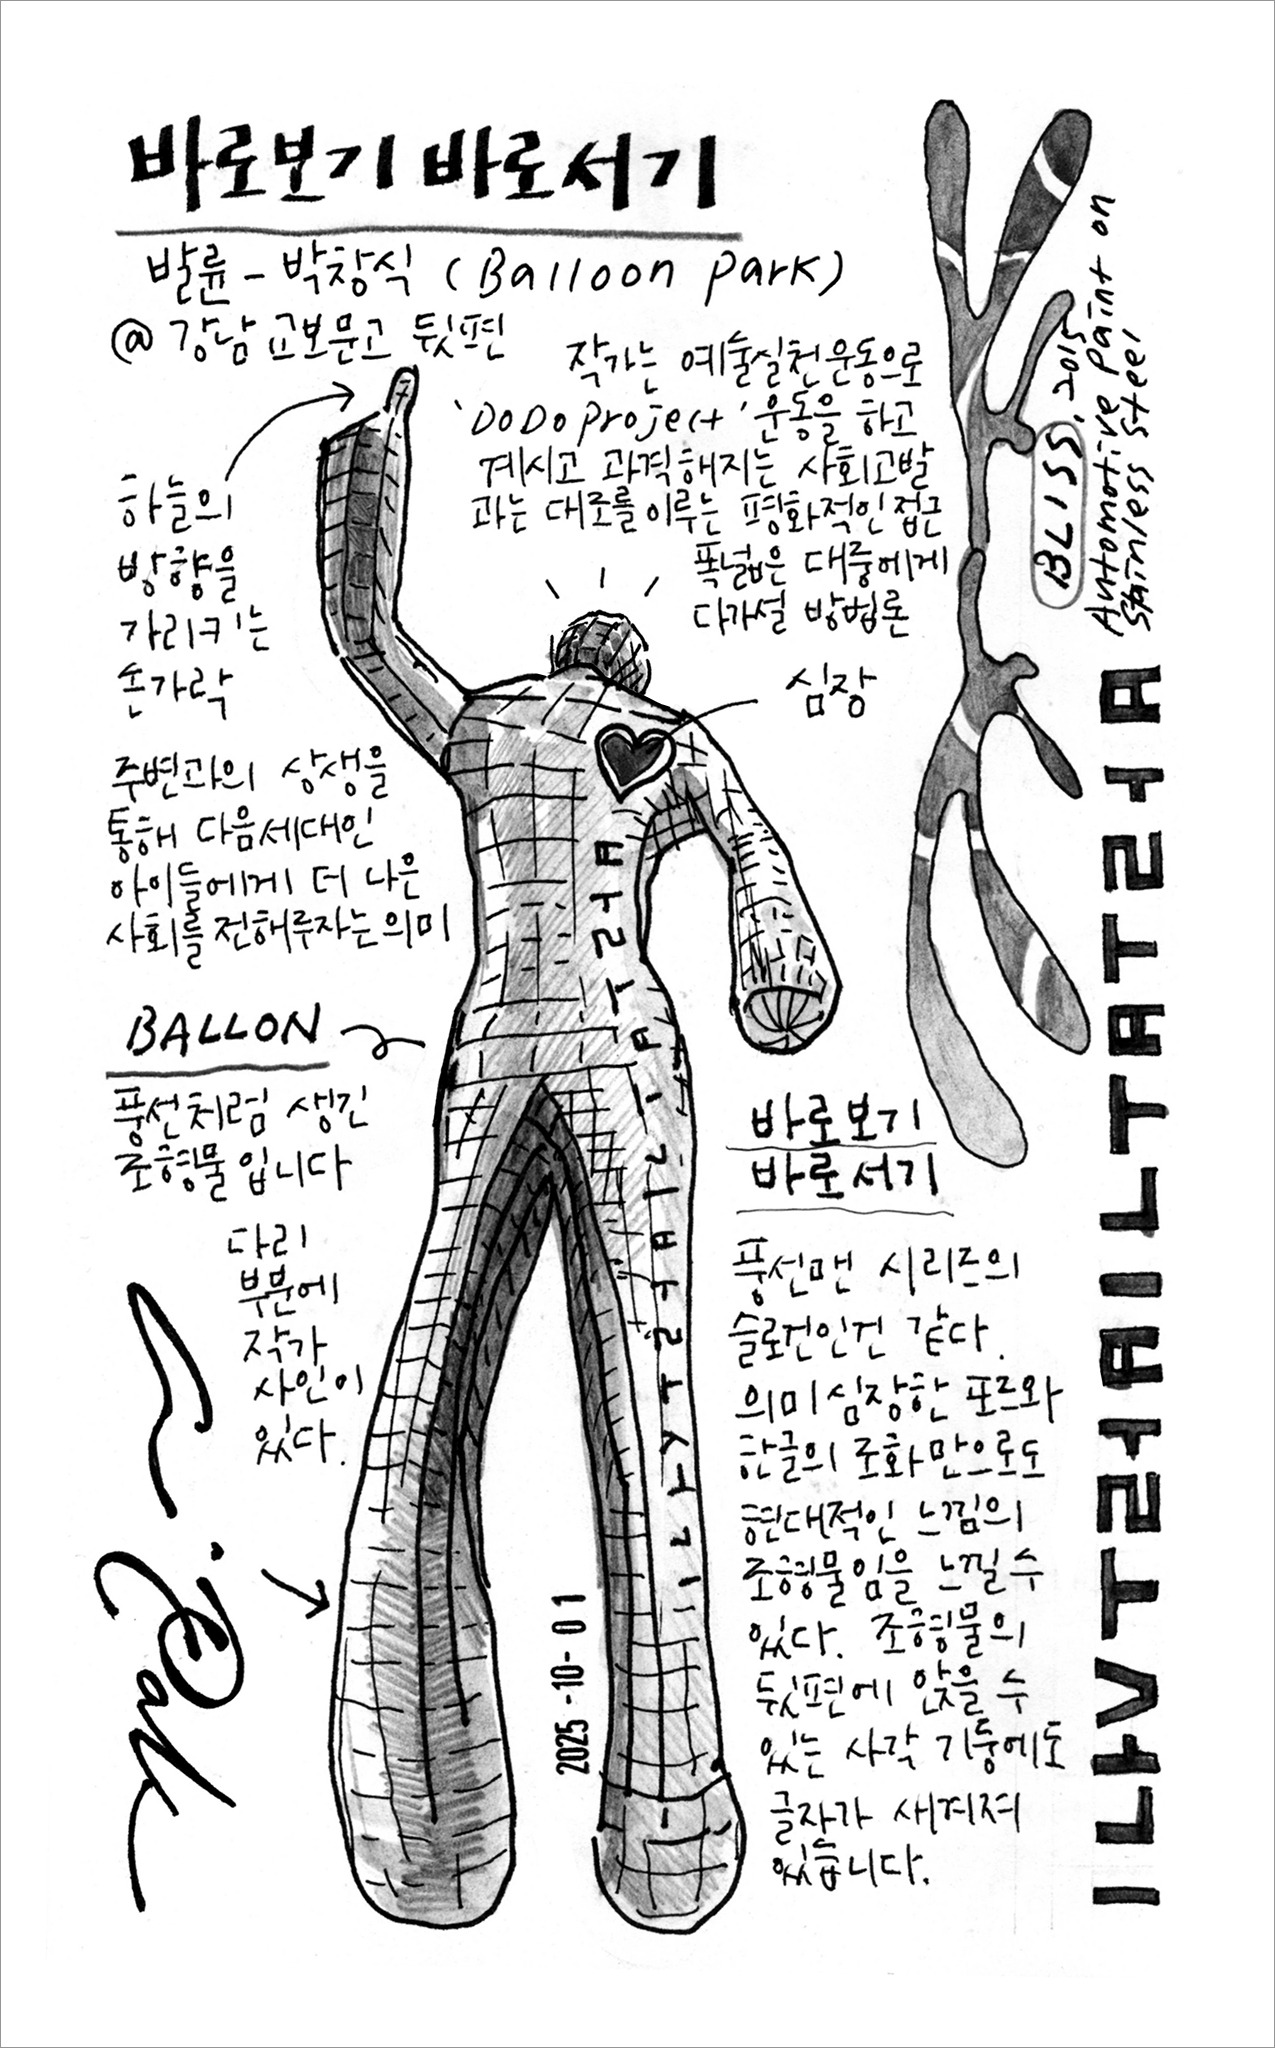 바로보기 바로서기
발륜 - 박창식 (Balloon park)
@ 강남 교보문고 뒷편
작가는 예술실천운동으로
'DoDo project' 운동을 하고
계시고 과격해지는 사회고발
과는 대조를 이루는 평화적인 접근
폭넓은 대중에게
다가설 방법론
하늘의
방향을
가리키는
손가락
심장
주변과의 상생을
통해 다음세대인
아이들에게 더 나은
사회를 전해주자는 의미
BALLON
풍선처럼 생긴
조형물 입니다
다리
부분에
작가
사인이
있다.
Park
2025-10-01
BLISS, 2015
Automotive paint on
stainless steel
바로보기
바로서기
풍선맨 시리즈의
슬로건인건 같다.
의미심장한 포즈와
한글의 조화만으로도
현대적인 느낌의
조형물임을 느낄 수
있다. 조형물의
뒷편에 앉을 수
있는 사각 기둥에도
글자가 새겨져
있습니다.